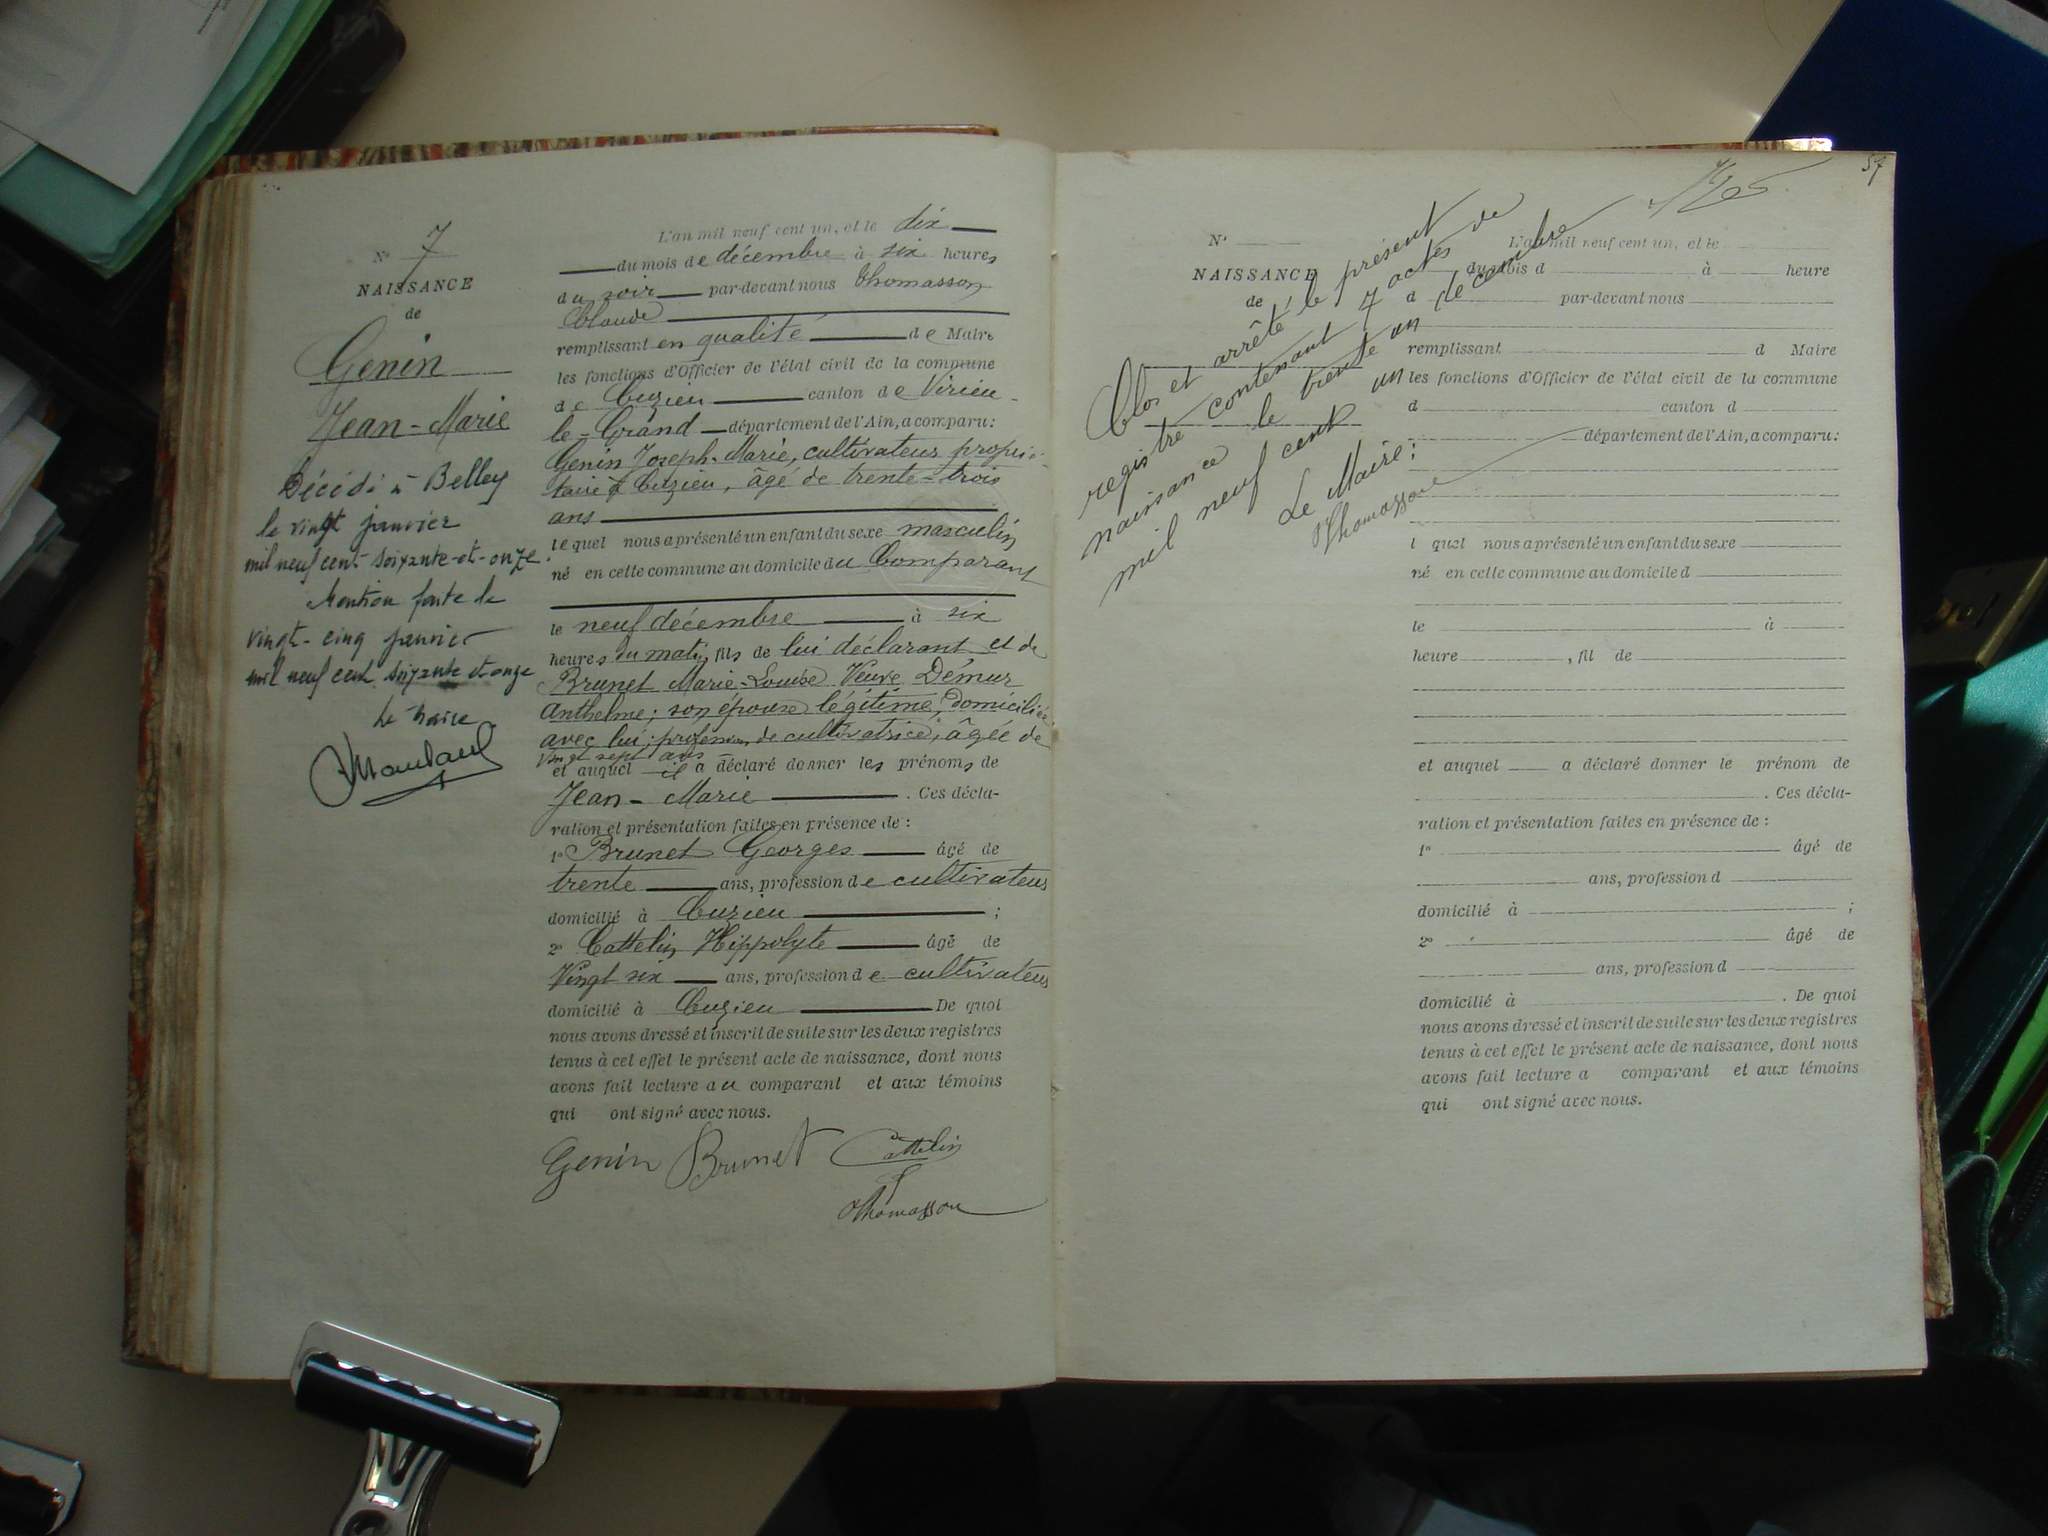 N° 7
NAISSANCE
de
Genin
Jean-Marie
Décédé à Belley
le vingt janvier
mil neuf cent soixante-et-onze.
Mention faite le
vingt-cinq janvier
mil neuf cent soixante et onze
Le Maire
L'an mil neuf cent un, et le dix
du mois de décembre à six heures
du soir par-devant nous Thomasson
Claude
remplissant en qualité de Maire
les fonctions d'Officier de l'état civil de la commune
de Cuzieu canton de Virieu-
le-Grand département de l'Ain, a comparu:
Genin Joseph-Marie, cultivateur, proprié-
taire à Cuzieu, âgé de trente-trois
ans
lequel nous a présenté un enfant du sexe masculin
né en cette commune au domicile du Comparant
le neuf décembre à six
heures du matin, fils de lui déclarant et de
Brunet Marie-Louise Veuve Démur
Anthelme; son épouse légitime, domiciliée
avec lui, profession de cultivatrice, âgée de
vingt sept ans
et auquel il a déclaré donner les prénoms de
Jean-Marie . Ces décla-
ration et présentation faites en présence de :
1° Brunet Georges âgé de
trente ans, profession de cultivateur
domicilié à Cuzieu ;
2° Cattelin Hippolyte âgé de
Vingt six ans, profession de cultivateur
domicilié à Cuzieu De quoi
nous avons dressé et inscrit de suite sur les deux registres
tenus à cet effet le présent acte de naissance, dont nous
avons fait lecture au comparant et aux témoins
qui ont signé avec nous.
Genin Brunet Cattelin
Thomasson
57
Clos et arrêté le présent
registre contenant 7 actes de
naissance le trente un décembre
mil neuf cent un
Le Maire:
Thomasson
N°
NAISSANCE
de
L'an mil neuf cent un, et le
du mois d à heure
par-devant nous
remplissant d Maire
les fonctions d'Officier de l'état civil de la commune
d canton d
département de l'Ain, a comparu:
l quel nous a présenté un enfant du sexe
né en cette commune au domicile d
le à
heure , fil de
et auquel a déclaré donner le prénom de
. Ces décla-
ration et présentation faites en présence de :
1° âgé de
ans, profession d
domicilié à ;
2° âgé de
ans, profession d
domicilié à . De quoi
nous avons dressé et inscrit de suite sur les deux registres
tenus à cet effet le présent acte de naissance, dont nous
avons fait lecture a comparant et aux témoins
qui ont signé avec nous.